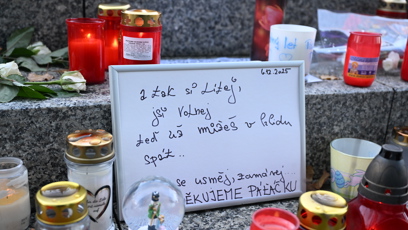 6.12.2025
a tak si lítej,
jsi volnej
teď už můžeš v klidu
spát..
se usměj, zamávej
ĚKUJEME PÁŤÁČKU